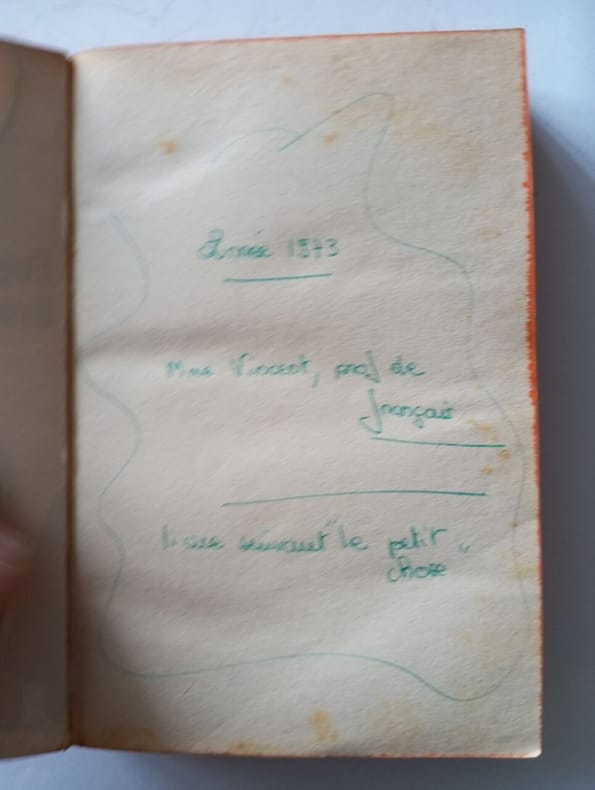 Année 1973
Mme Vincent, prof de
français
livre suivant "le petit
chose"